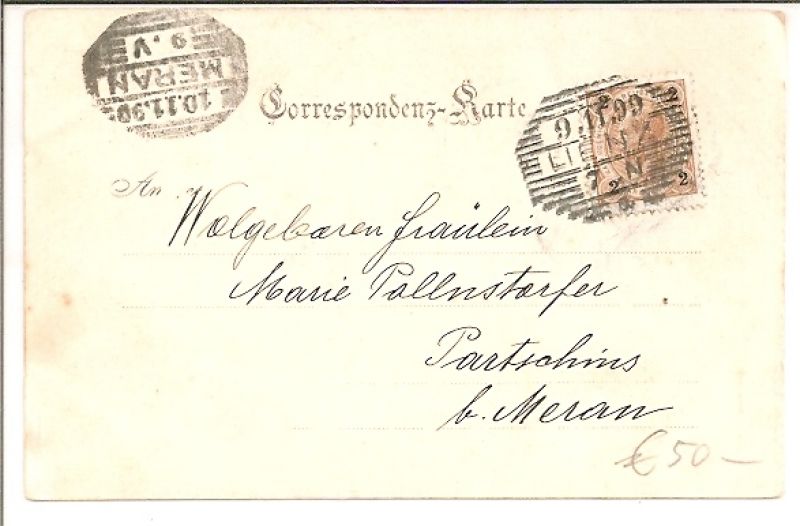 9.V
MERAN
10.11.99
Correspondenz-Karte
2
9.11.99
LIENZ
7 N
2 2
An Wolgebaren Fräulein
Marie Pollnstorfer
Partschins
b. Meran
€ 50 —